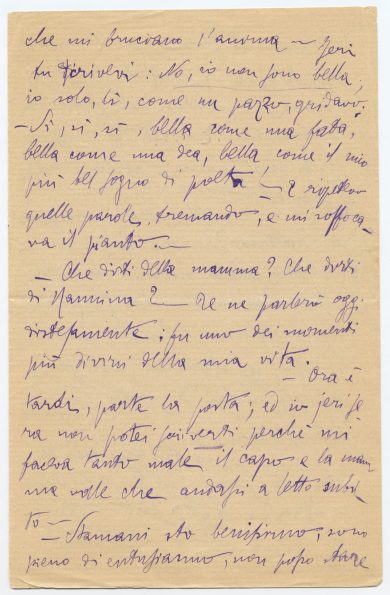 che mi bruciano l'anima — Jeri
tu scrivevi: No, io non sono bella,
io solo, lì, come un pazzo, gridavo:
— Sì, sì, sì, bella come una fata,
bella come una dea, bella come il mio
più bel sogno di poeta! — e ripetevo
quelle parole, tremando, e mi soffoca-
va il pianto. —
— Che dirti della mamma? Che dirti
di Nannina? — Te ne parlerò oggi
distesamente: fu uno dei momenti
più divini della mia vita.
— Ora è
tardi, parte la posta; ed io jerise
ra non potei scriverti perchè mi
faceva tanto male il capo e la mam
ma volle che andassi a letto subi-
to — Stamani sto benissimo, sono
pieno di entusiasmo, non posso stare